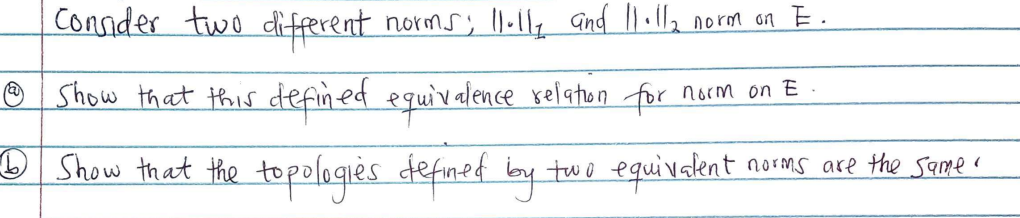 Consider two different norms; ||·||₁ and ||·||₂ norm on E.
ⓐ Show that this defined equivalence relation for norm on E.
ⓑ Show that the topologies defined by two equivalent norms are the same.